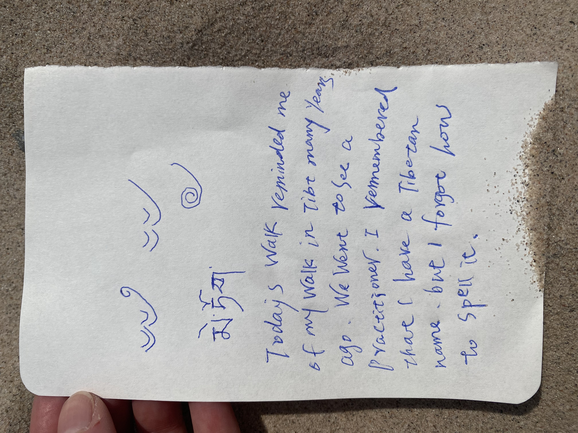 Today's walk reminded me
of my walk in Tibt many years
ago. We went to see a
practitioner. I remembered
that I have a Tibetan
name. but I forgot how
to spell it.